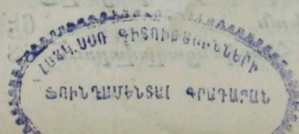 ՀԱՅԿ. ՍՍՌ ԳԻՏՈՒԹՅՈՒՆՆԵՐԻ
ՖՈՒՆԴԱՄԵՆՏԱԼ ԳՐԱԴԱՐԱՆ